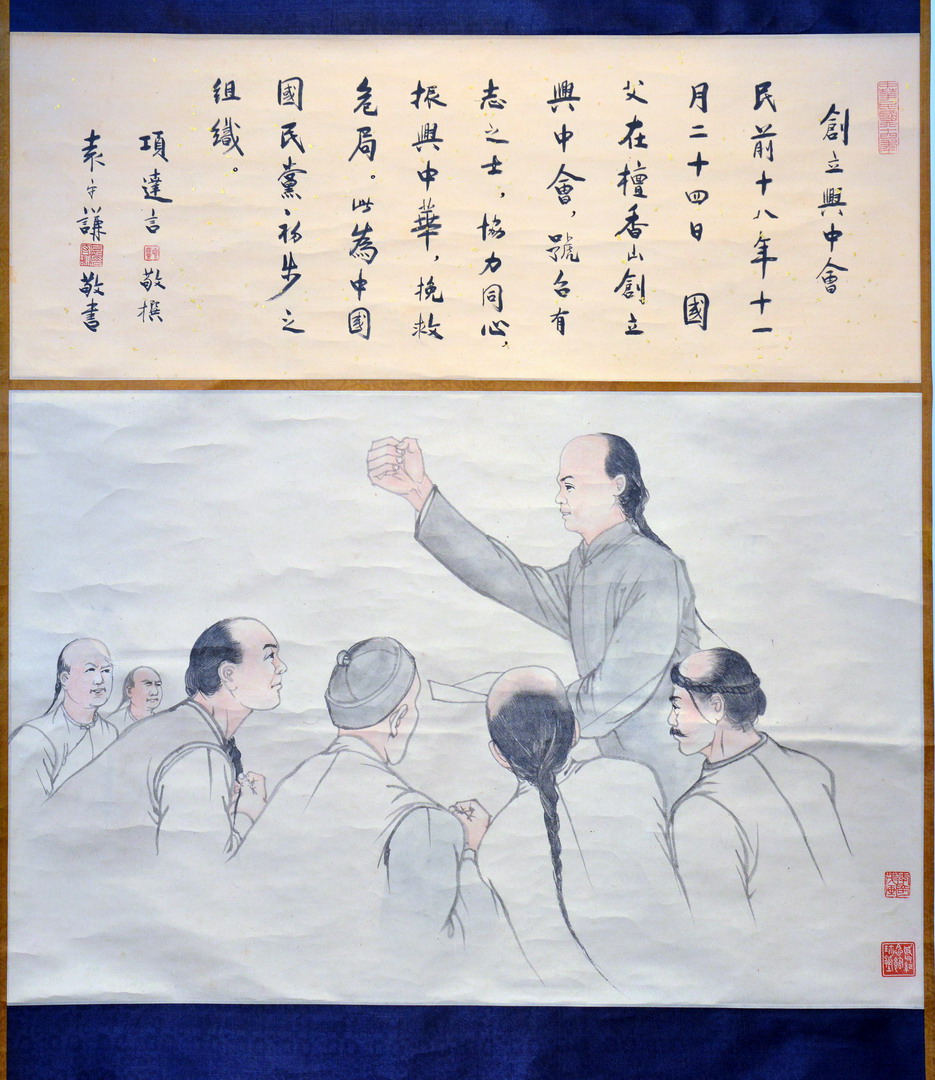 創立興中會
民前十八年十一
月二十四日 國
父在檀香山創立
興中會，號召有
志之士，協力同心，
振興中華，挽救
危局。此為中國
國民黨初步之
組織。
項達言敬撰
袁守謙敬書